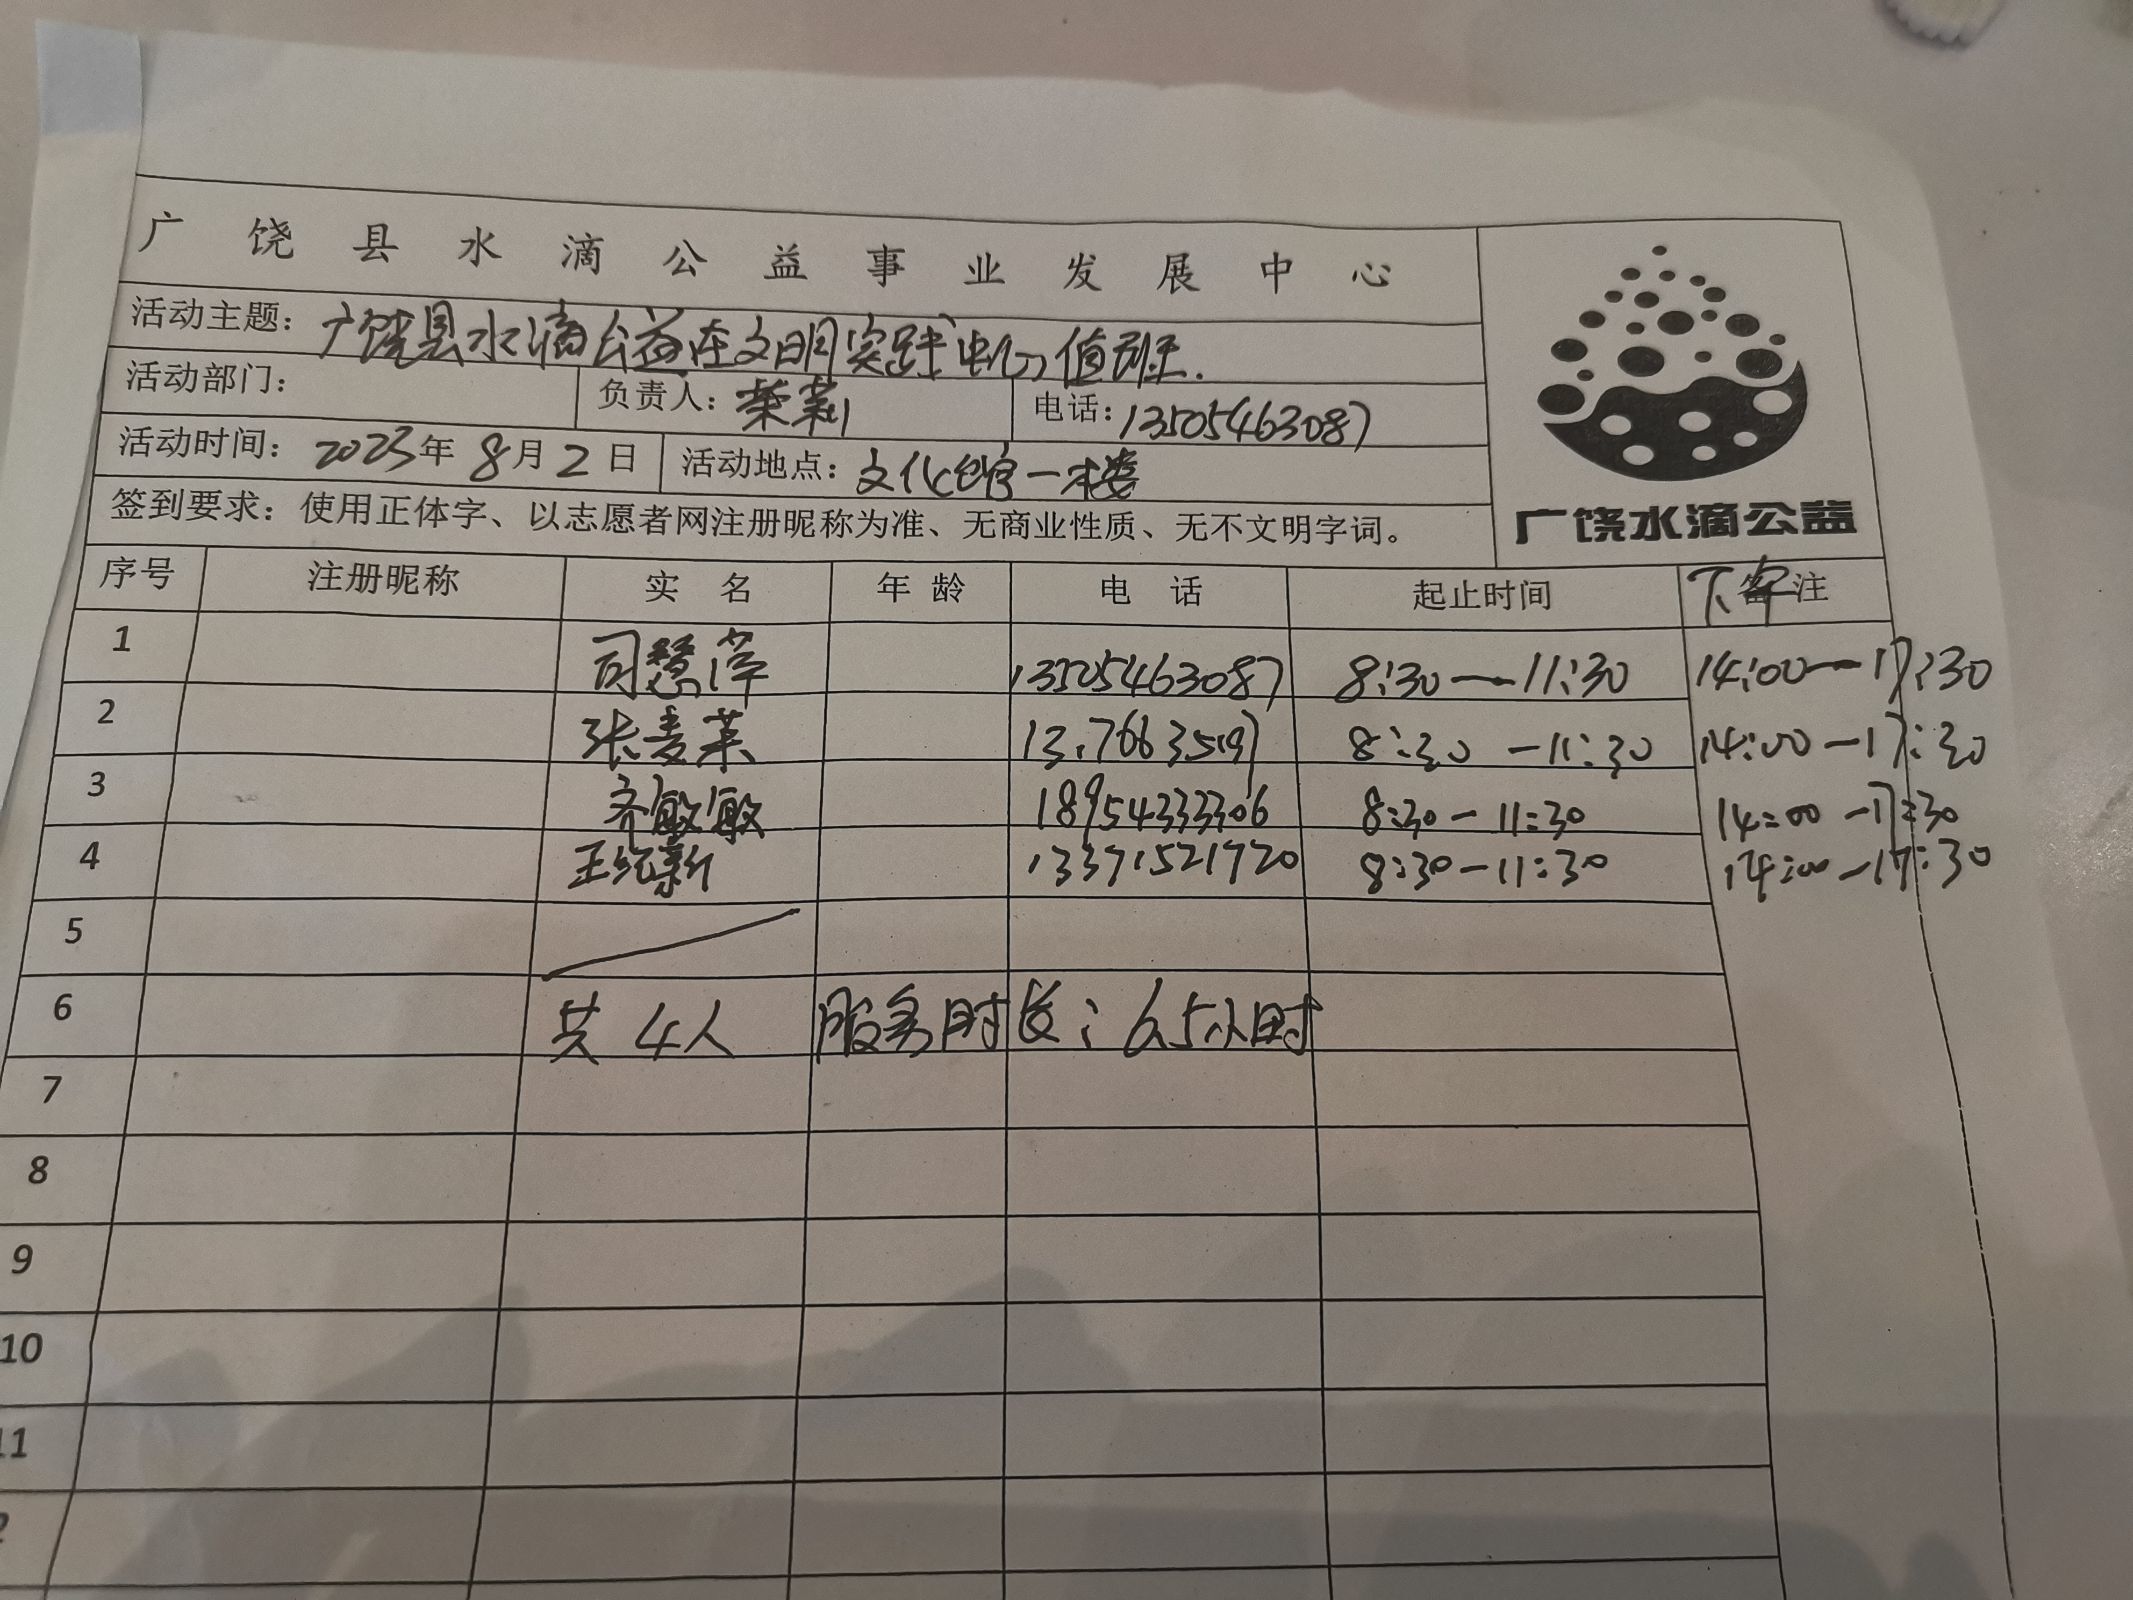 广饶县水滴公益事业发展中心
活动主题：广饶县水滴公益在文明实践中心值班.
活动部门： 负责人：荣莉 电话：13505463087
活动时间：2023年8月2日 活动地点：文化馆一楼
签到要求：使用正体字、以志愿者网注册昵称为准、无商业性质、无不文明字词。
广饶水滴公益
序号 注册昵称 实名 年龄 电话 起止时间 备注 下午
1 司慧萍 13505463087 8:30—11:30 14:00—17:30
2 张麦英 8:30—11:30 14:00—17:30
3 齐敏敏 18954333306 8:30—11:30 14:00—17:30
4 13371521720 8:30—11:30 14:00—17:30
5
6 共4人 服务时长：6.5小时
7
8
9
10
11
2